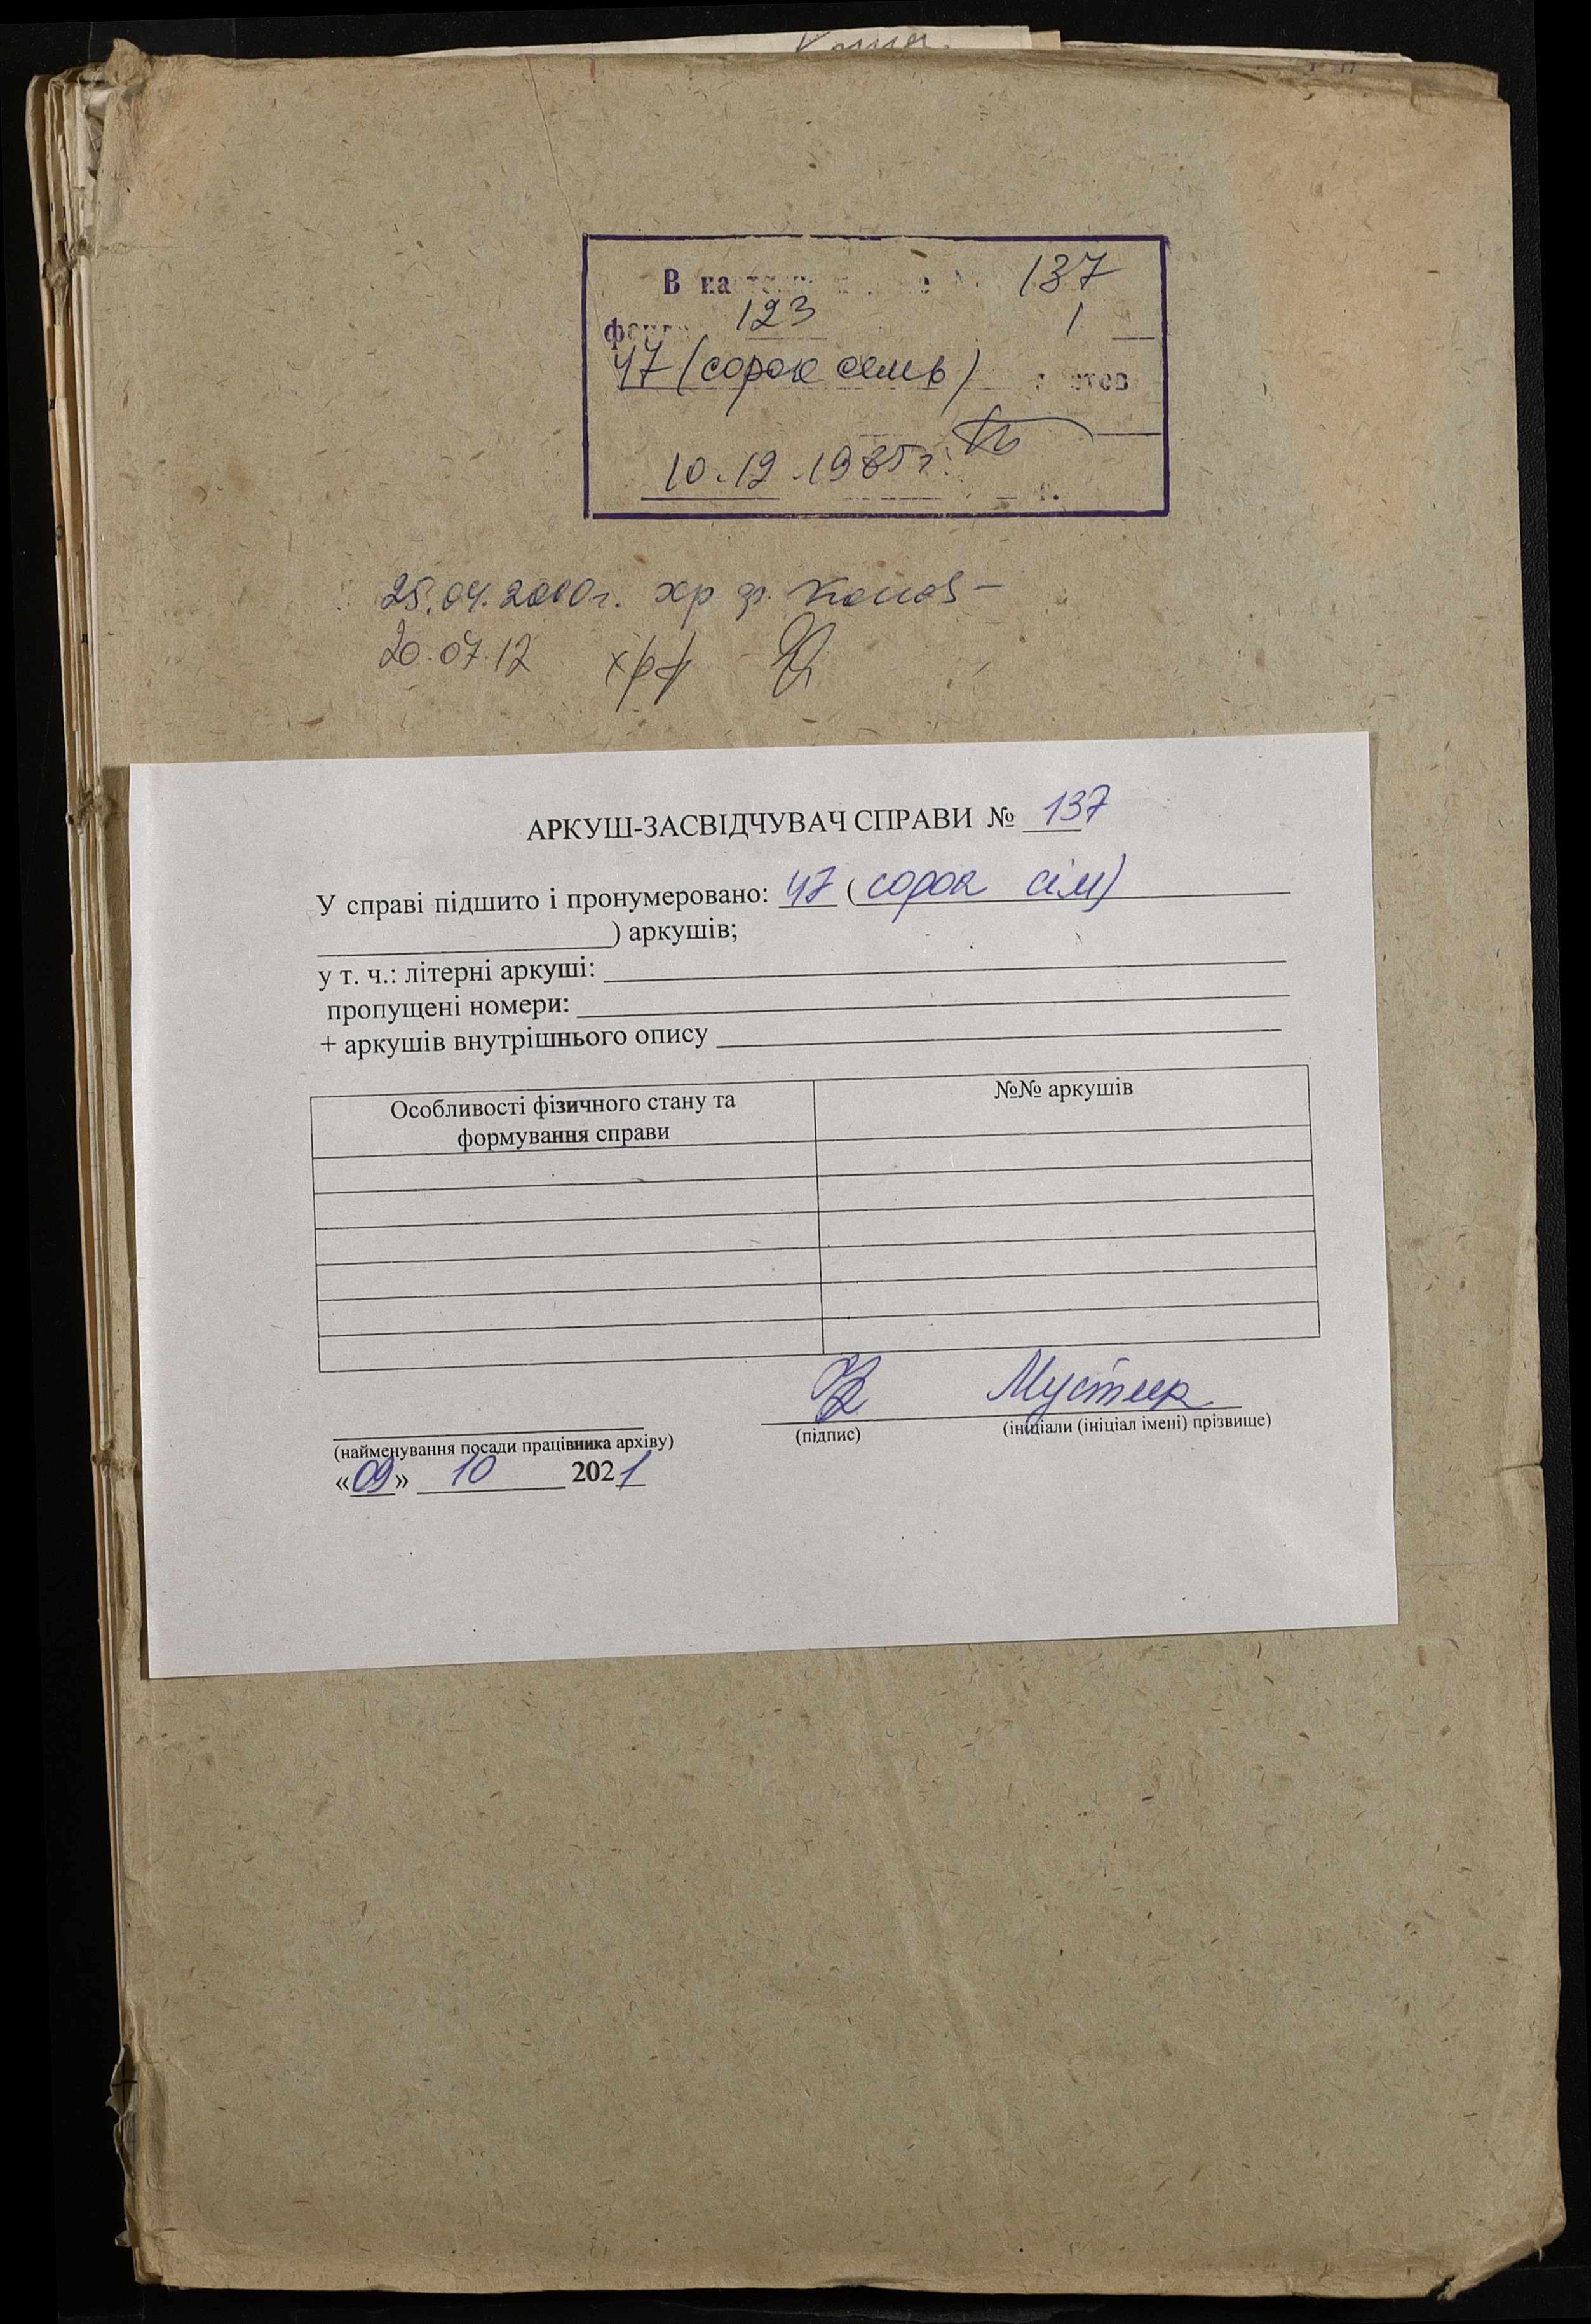 В 137
123 1
47 (сорок семь)
10.12.1985г.
25.04.2000г. хр ф.
20.07.12 хрф
АРКУШ-ЗАСВІДЧУВАЧ СПРАВИ № 137
У справі підшито і пронумеровано: 47 (сорок сім)
) аркушів;
у т. ч.: літерні аркуші:
пропущені номери:
+ аркушів внутрішнього опису
Особливості фізичного стану та
формування справи
№№ аркушів
(найменування посади працівника архіву)
(підпис)
(ініціали (ініціал імені) прізвище)
«09» 10 2021